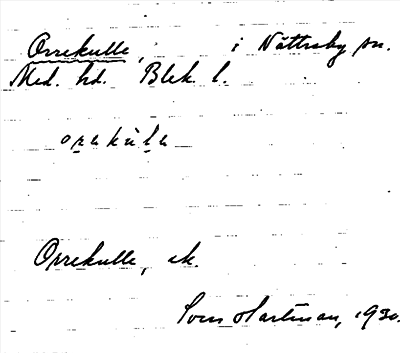 Orrekulle, i Nättraby sn.
Med. hd. Blek. l.
orekula
Orrekulle, ek.
Sven Hartman, 1930.